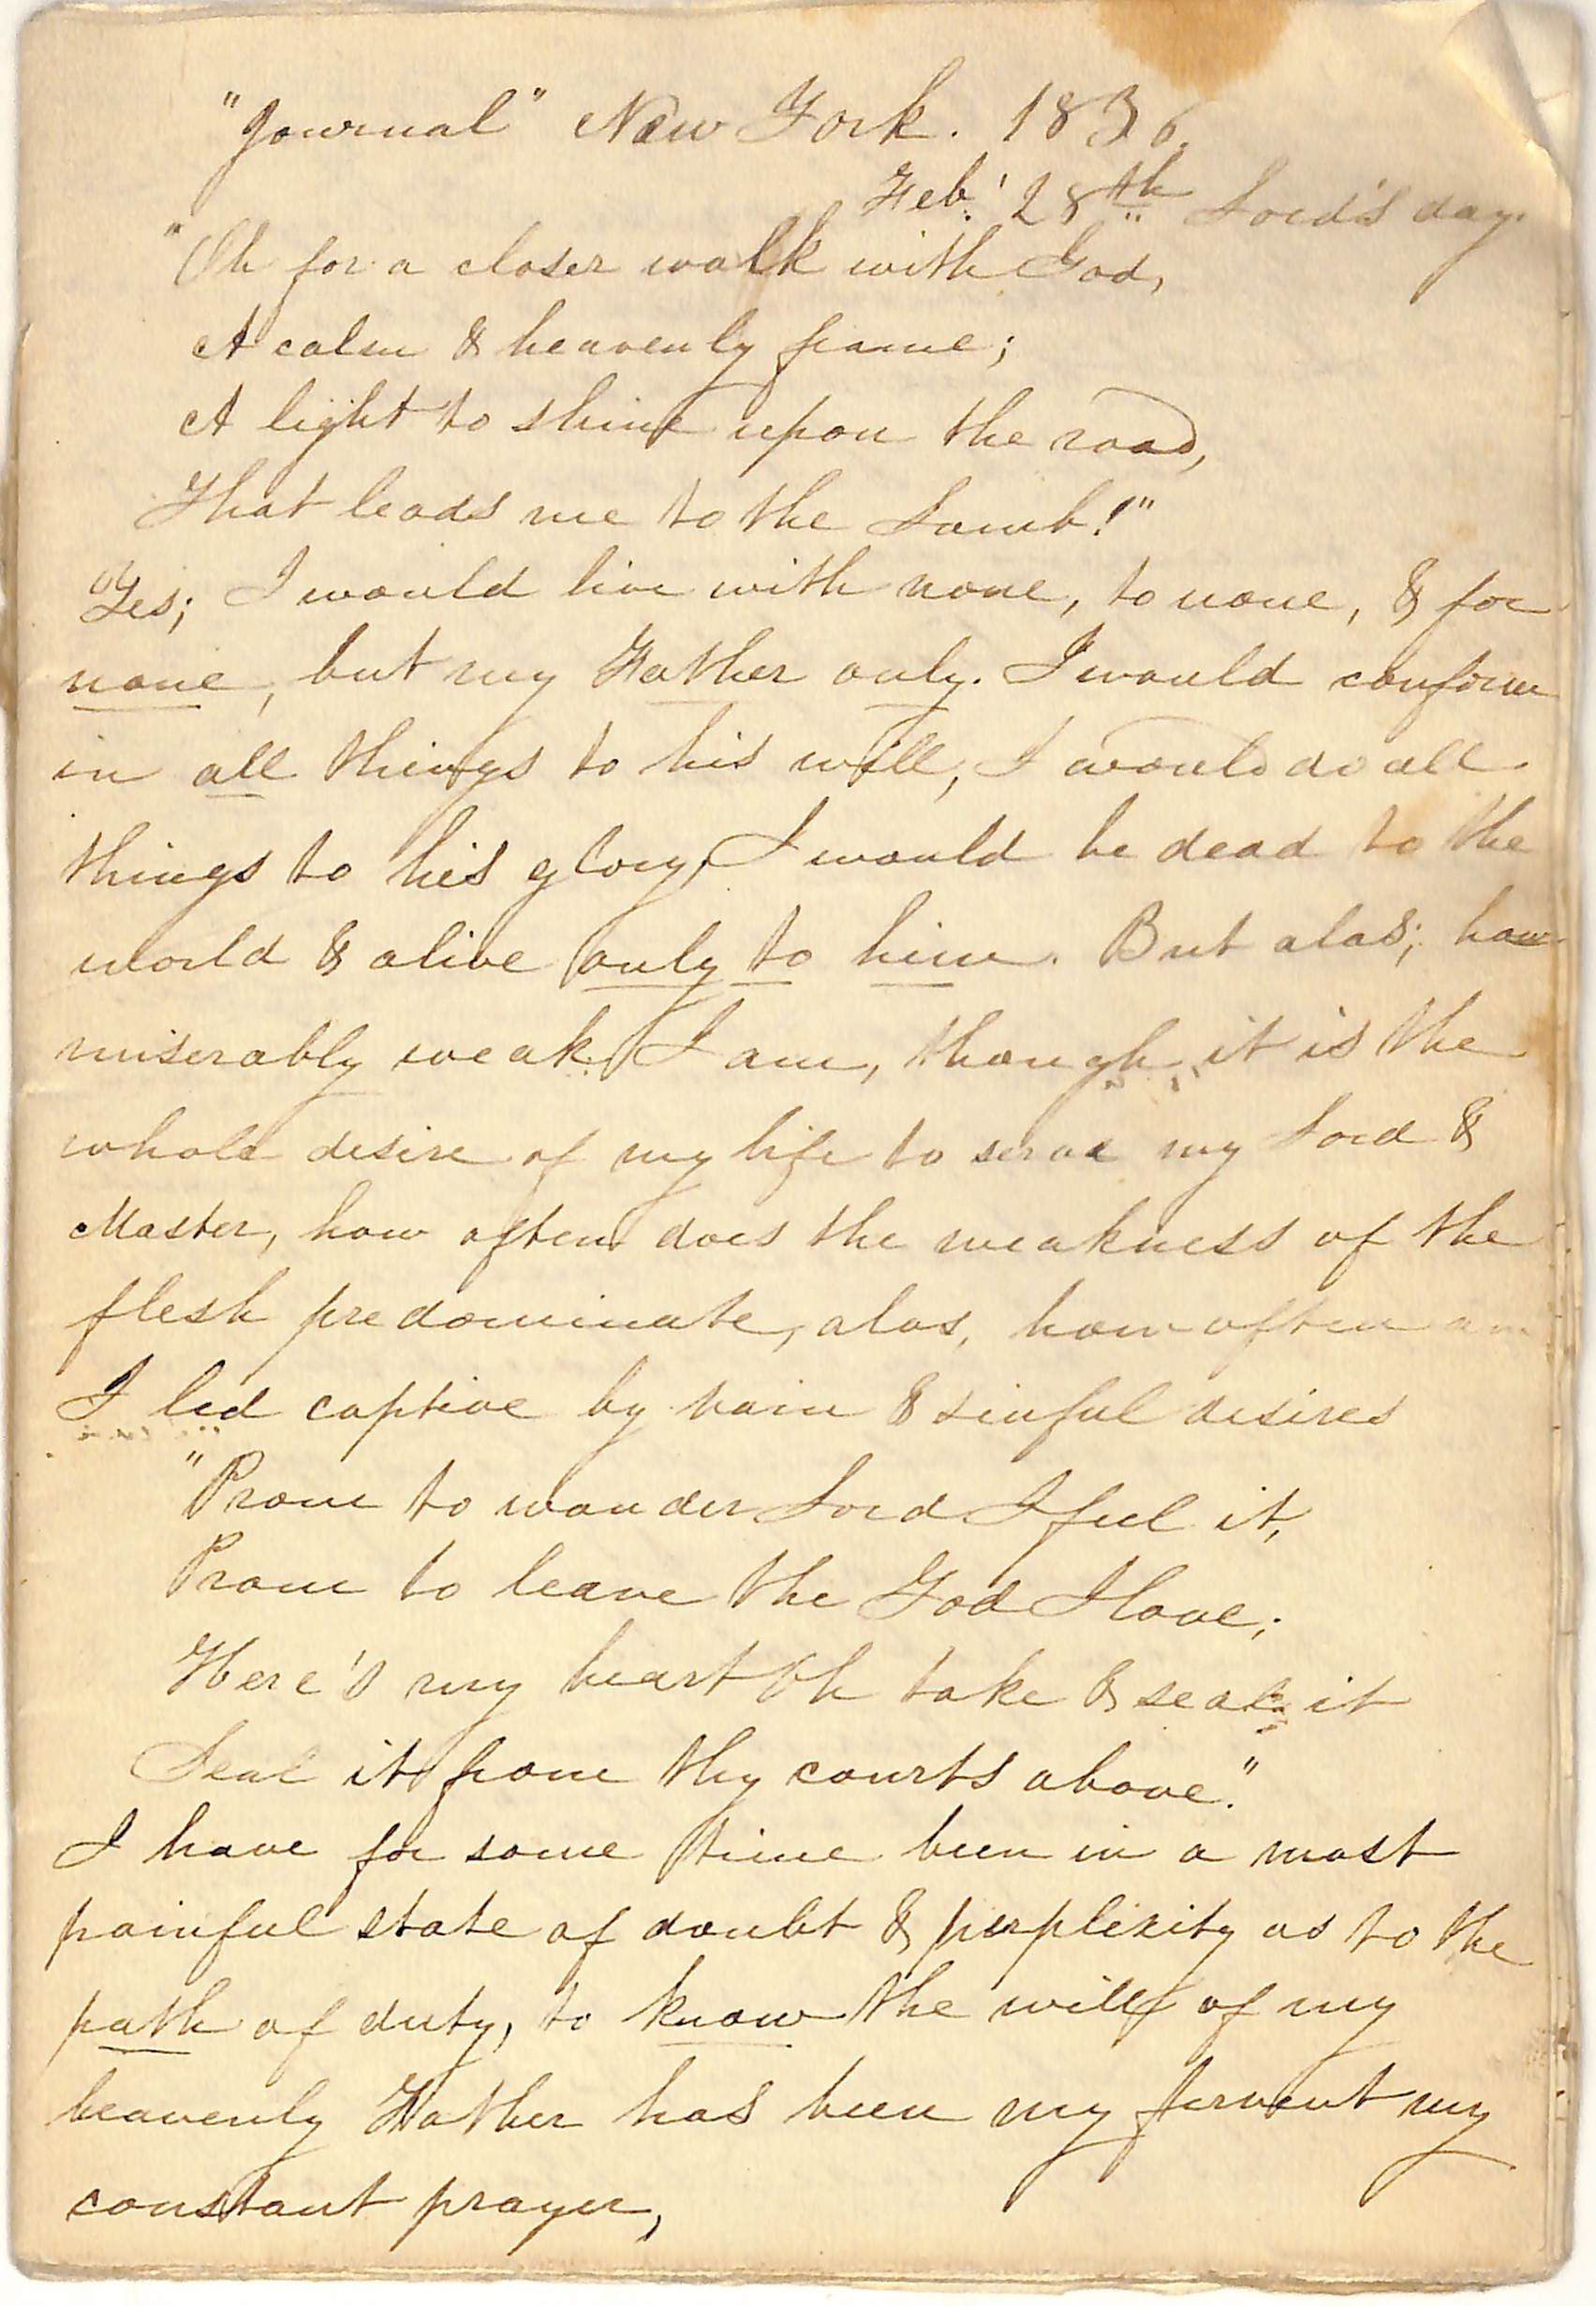 "Journal" New York. 1836.
Feb.' 28th Lord's day.
"Oh for a closer walk with God,
A calm & heavenly frame;
A light to shine upon the road,
That leads me to the Lamb!"
Yes; I would live with none, to none, & for
none, but my Father only. I would conform
in all things to his will, I would do all
things to his glory, I would be dead to the
world & alive only to him. But alas; how
miserably weak I am, though it is the
whole desire of my life to serve my Lord &
Master, how often does the weakness of the
flesh predominate, alas, how often am
I led captive by vain & sinful desires
"Prone to wander Lord I feel it,
Prone to leave the God I love;
Here's my heart Oh take & seal it
Seal it from thy courts above."
I have for some time been in a most
painful state of doubt & perplexity as to the
path of duty, to know the will of my
heavenly Father has been my fervent my
constant prayer,